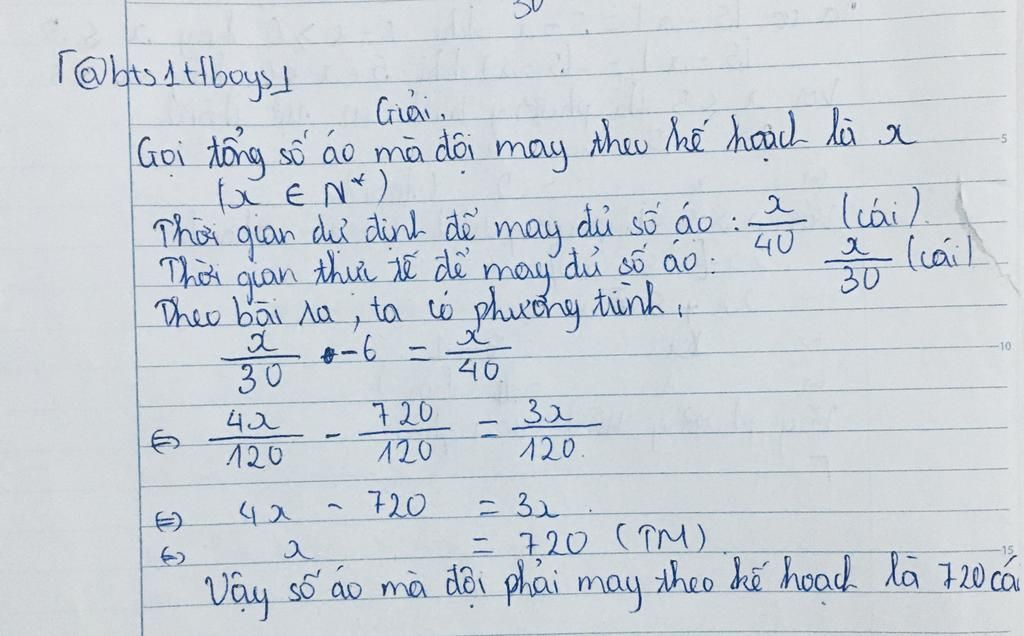 30
[@bts1tflboys1
Giải.
Gọi tổng số áo mà đội may theo kế hoạch là x
(x ∈ N*)
Thời gian dự định để may đủ số áo : x/40 (cái).
Thời gian thực tế để may đủ số áo : x/30 (cái)
Theo bài ra, ta có phương trình,
x/30 - 6 = x/40
⇔ 4x/120 - 720/120 = 3x/120.
⇔ 4x - 720 = 3x.
⇔ x = 720 (TM).
Vậy số áo mà đội phải may theo kế hoạch là 720 cá
5
10
15